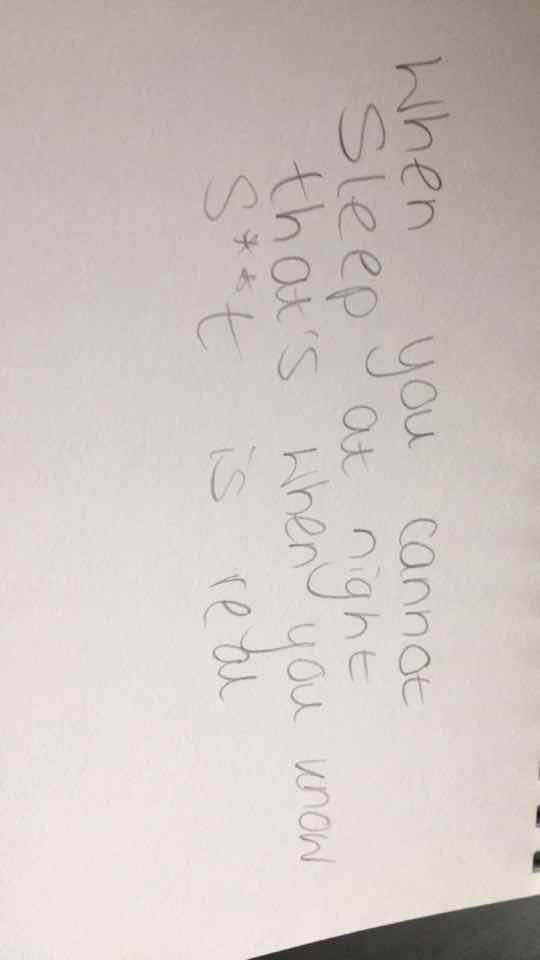 When you cannot
Sleep at night
that's when you know
S**t is real